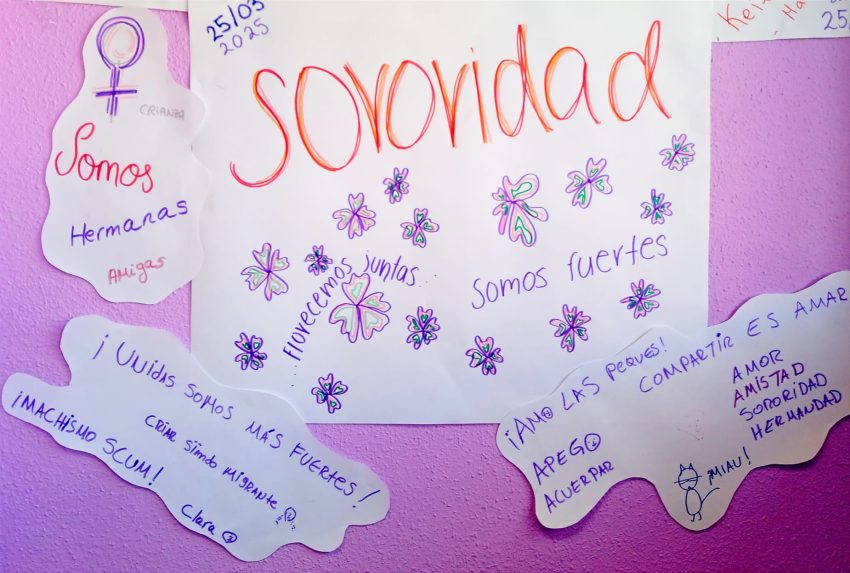 25/03
2025
SORORIDAD
CRIANZA
Somos
Hermanas
Amigas
florecemos juntas...
Somos fuertes
¡UNIDAS SOMOS MÁS FUERTES!
¡MACHISMO SCUM!
CRIAR SIENDO MIGRANTE
Clara
¡AMO LAS PEQUES!
COMPARTIR ES AMAR
APEGO
ACUERPAR
AMOR
AMISTAD
SORORIDAD
HERMANDAD
¡MIAU!
25/